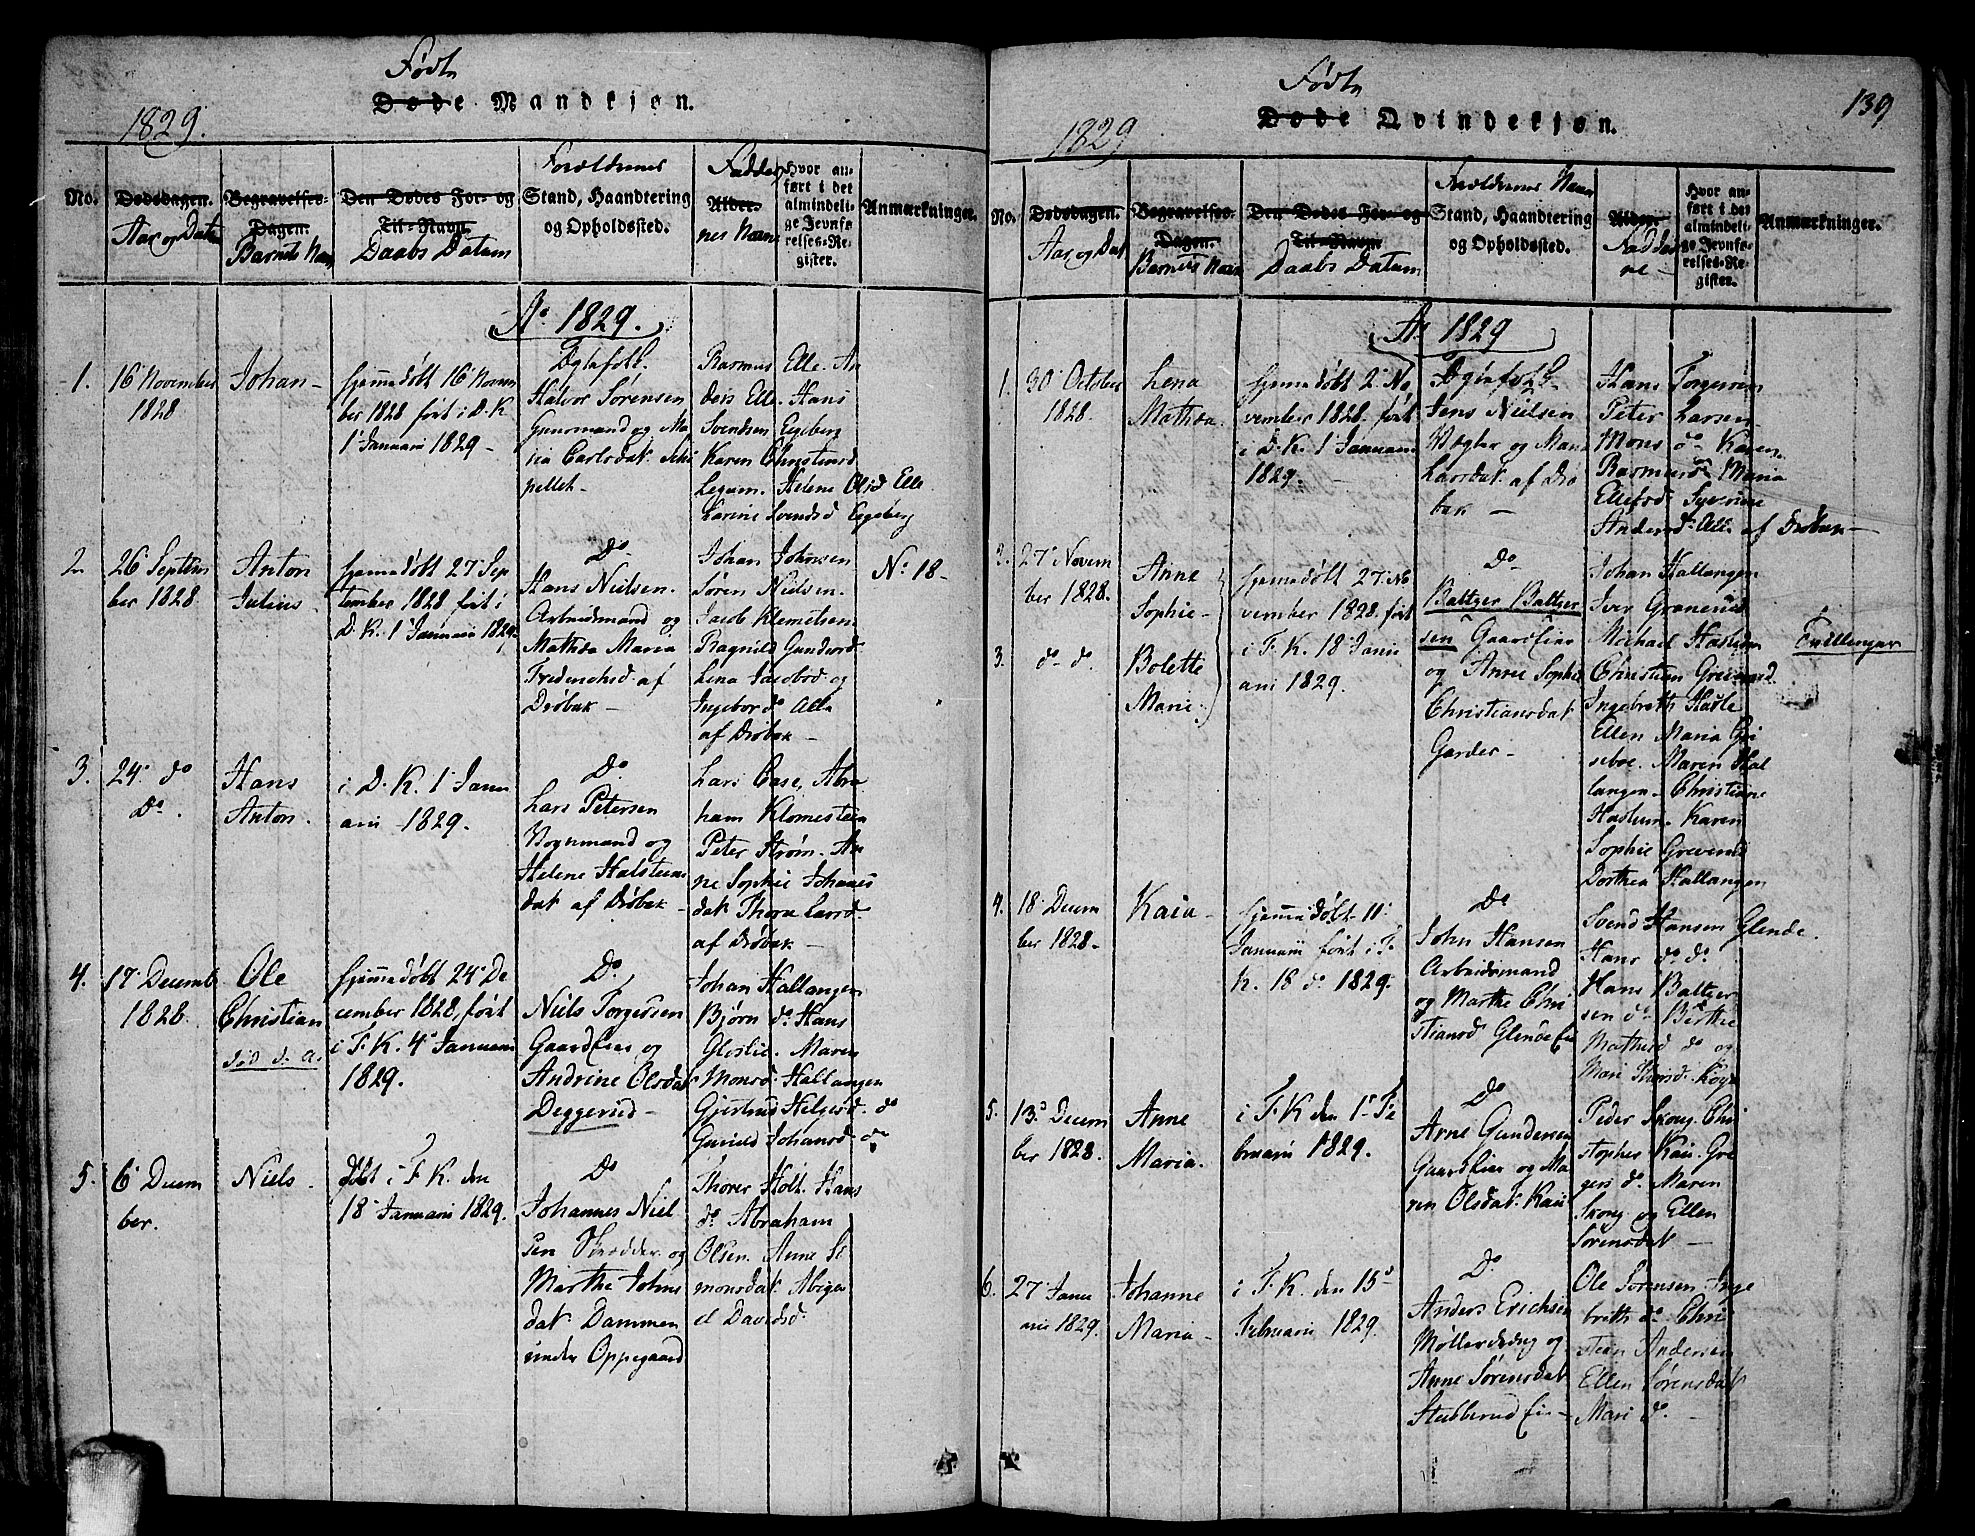 Fødte
Døde Mandkjøn.
1829.
No.
Dødsdagen.
Aar og Datum
Begravelses-
Dagen.
Barnets Navn
Den Dødes For- og
Til-Navn
Daabs Datum
Forældrenes
Stand, Haandtering
og Opholdssted.
Faddernes Navne
Alder
Hvor an-
ført i det
almindeli-
ge Jevnfø-
relses-Re-
gister.
Anmærkninger.
Ao 1829.
1.
16 November
1828
Johan
hjemmedøbt 16 Novem
ber 1828 ført i D. K.
1 Januarii 1829
Ægtefolk.
Halvor Sørensen
Gaarmand og Ma
ria Carlsdat.
pellet
Rasmus Elle. An
ders Elle. Hans
Svendsen Egeberg
Karen Christensd
Legum. Helene Olsd Elle
Karine Svendsd Egeberg
2
26 Septem
ber 1828
Anton
Julius
hjemmedøbt 27 Sep
tember 1828 ført i
D. K. 1 Januarii 1829
Do
Hans Nielsen
Arbeidsmand og
Mathea Maria
Fredrichsd af
Drøbak
Johan Johnsen
Søren Nielsen
Jacob Klemetsen
Ragnild Gundersd
Lena Jacobsd og
Ingebor do Alle
af Drøbak
No 18
3.
24 do
Do
Hans
Anton.
i D. K. 1 Janu
arii 1829.
Do
Lars Petersen
Vognmand og
Helene Halsteens
dat af Drøbak
Lars Case, Abra
ham Klomesteen
Peter Strøm. An
ne Sophie Johanes
dat Thora Larsd
af Drøbak
4.
17 Decemb
1828.
Ole
Christian
død d. A.
hjemmedøbt 24 De
cember 1828, ført
i F. K. 4 Januarii
1829.
Do
Niels Torgersen
Gaardeier og
Andrine Olsdat
Deggerud
Johan Hallangen
Bjørn do Hans
Gloslie. Maren
Monsd Hallangen
Gjertrud Helgesd. do
Gunild Johansd do
5.
6 Decem
ber.
Niels
døbt i F. K. den
18 Januarii 1829.
Do
Johannes Niel
sen Skrædder og
Marthe Johns
dat. Dammen
under Oppegaard
Thorer Holt. Hans
do Abraham
Olsen. Anne Si
monsdat Abiga
el Davidsd.
Fødte
Døde Qvindekjøn.
139
1829
No.
Dødsdagen.
Aar og Dat
Begravelses-
Dagen.
Barnets Navn
Den Dødes For- og
Til-Navn
Daabs Datum
Forældrenes Navn
Stand, Haandtering
og Opholdssted.
Alder.
Faddere
ne
Hvor an-
ført i det
almindeli-
ge Jevnfø-
relses-Re-
gister.
Anmærkninger.
Ao 1829
1.
30 October
1828.
Lena
Mathea.
hjemmedøbt 2 No
vember 1828. ført
i D. K. 1 Januarii
1829.
Ægtefolk
Jens Nielsen
Vægter og Maria
Larsdat af Drø
bak
Hans Torgersen
Peter Larsen
Mons do Karen
Rasmusd Maria
Ellefsd Syverine
Andersd Alle af Drøbak
2.
27 Novem
ber 1828.
Anne
Sophie
hjemmedøbt 27 No
vember 1828 ført
i F. K. 18 Janu
arii 1829.
Do
Baltzer Baltzer
sen Gaardeier
og Anne Sophie
Christiansdat
Garder
3.
do do
Bolette
Marie
Johan Hallangen
Iver Granerud
Michael Haslum
Christian Greverud
Ingebreth Hasle
Ellen Maria Gi
seboe. Maren Hal
langen. Christiane
Haslum. Karen
Sophie Greverud
Dorthea Hallangen
Tvillinger
4.
18 Decem
ber 1828.
Kaia
hjemmedøbt 11
Januarii ført i F.
K. 18 do 1829.
Do
John Hansen
Arbeidsmand
og Marthe Chri
stiansd Glende Eie
Svend Hansen Glende.
Hans do do
Hans Baltzer
sen do Berthe
Mathisd do og
Mari
5.
13 Decem
ber 1828.
Anne
Maria.
i F. K den 1 Fe
bruarii 1829.
Do
Arne Gundersen
Gaardeier og Ma
ren Olsdat. Kaii
Peder Skong. Chri
stopher Kaii. Gre
gers do. Maren
Skong og Ellen
Sørensdat
6.
27 Janu
arii 1829.
Johanne
Maria
i F. K. den 15
Februarii 1829.
Do
Anders Erichsen
Møllerdreng og
Anne Sørensdat
Stubberud Eie
Ole Sørensen Inge
breth do. Chri
stian Andersen
Ellen Sørensdat
Mari do.